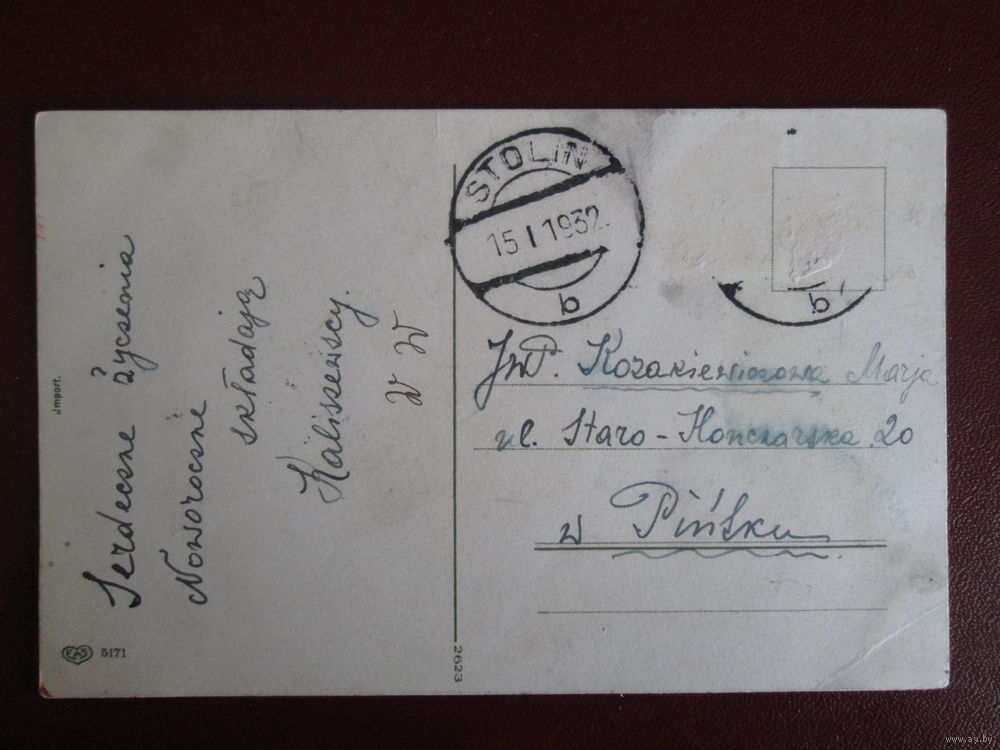 Serdeczne Życzenia
Noworoczne
składają
Kaliszewscy.
Jmport.
EAS 5171
2623
STOLIN
15 I 1932
b
JWP. Kozakiewiczowa Marja
ul. Staro-Honczarska 20
w Pińsku
www.ay.by